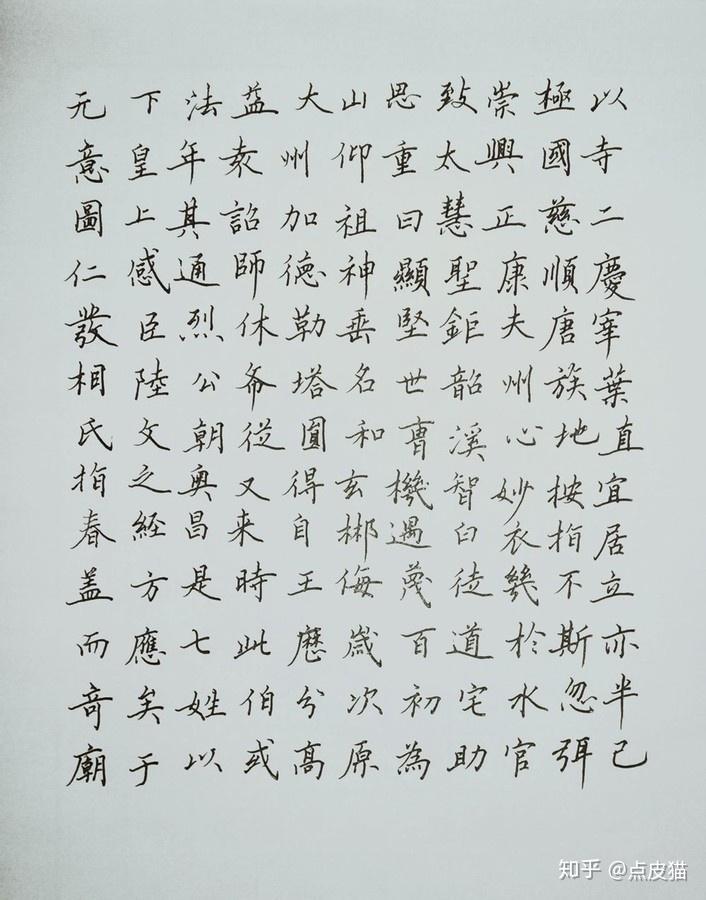 以寺二慶宰葉直宜居立亦半已
極國慈順唐族地按指不斯忽弭
崇興正康夫州心妙衣幾於水官
致太慧聖鉅韶溪智臼徒道宅助
思重曰顯堅世曹機遇蔑百初為
山仰祖神垂名和玄郴侮歲次原
大州加德勒塔圓得自王曆兮高
益袁詔師休斋從又来時此伯或
法年其通烈公朝奥昌是七姓以
下皇上感臣陸文之經方應矣于
元意圖仁發相氏指春盖而奇廟
知乎 @点皮猫